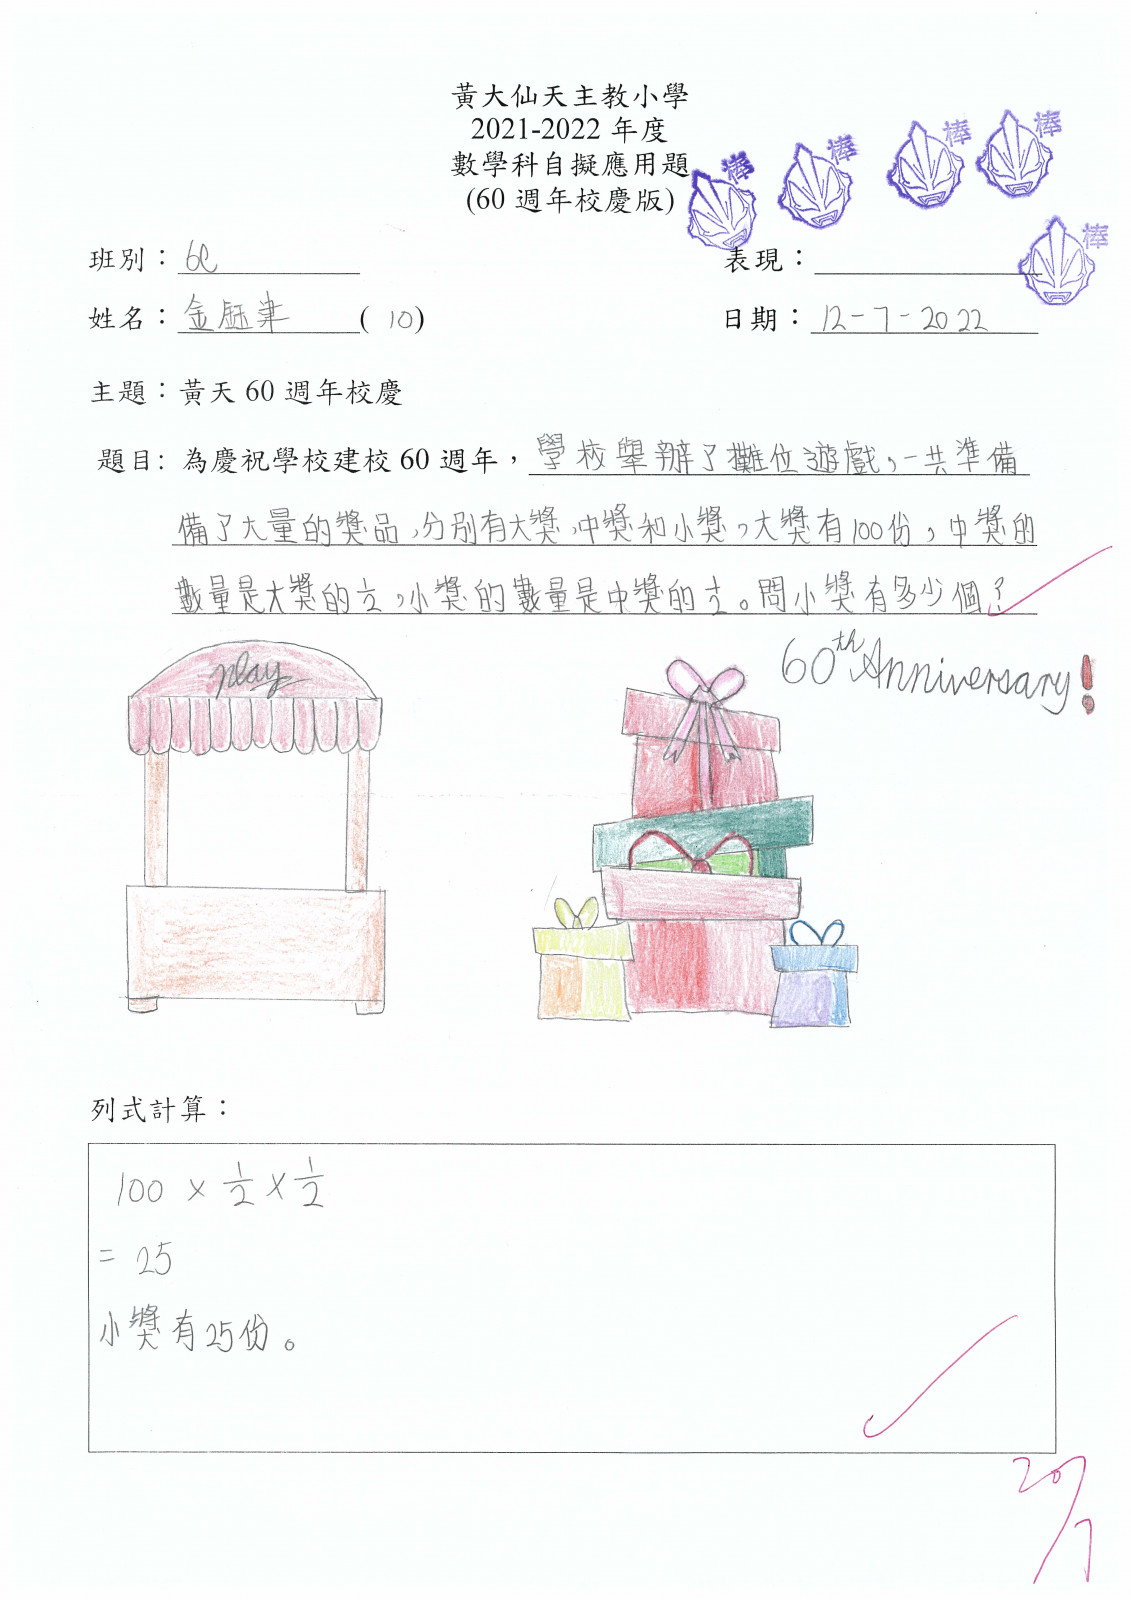 黃大仙天主教小學
2021-2022 年度
數學科自擬應用題
(60 週年校慶版)
棒 棒 棒 棒 棒
班別：6C 表現：
姓名：金 聿 (10) 日期：12-7-2022
主題：黃天 60 週年校慶
題目: 為慶祝學校建校 60 週年，學校舉辦了攤位遊戲，一共準備
備了大量的獎品，分別有大獎，中獎和小獎，大獎有100份，中獎的
數量是大獎的½，小獎的數量是中獎的½。問小獎有多少個？
play
60th Anniversary!
列式計算：
100 × ½ × ½
= 25
小獎有25份。
20/7